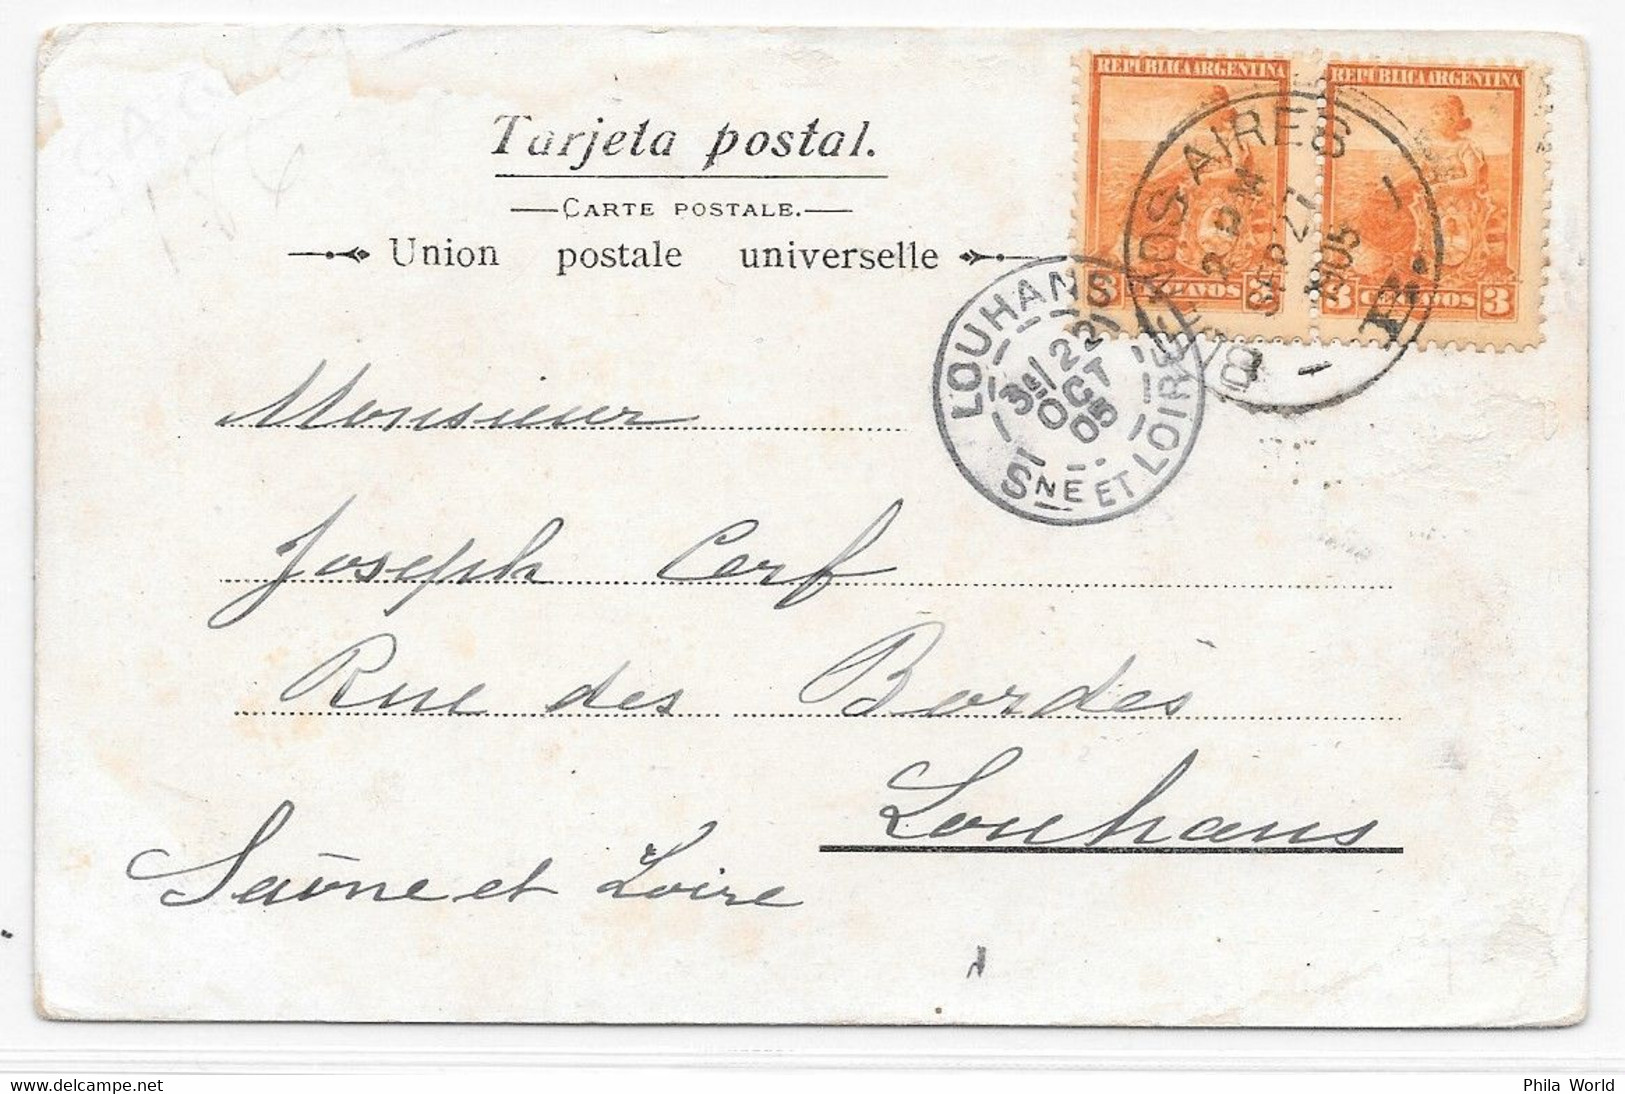 REPÚBLICA ARGENTINA REPÚBLICA ARGENTINA
Tarjeta postal.
CARTE POSTALE.
Union postale universelle
BUENOS AIRES
2 PM
SEP 27
1905
3 3
LOUHANS
22
OCT
05
SNE ET LOIRE
Monsieur
Joseph Cerf
Rue des Bordes
Louhans
Saône et Loire
www.delcampe.net
Phila World